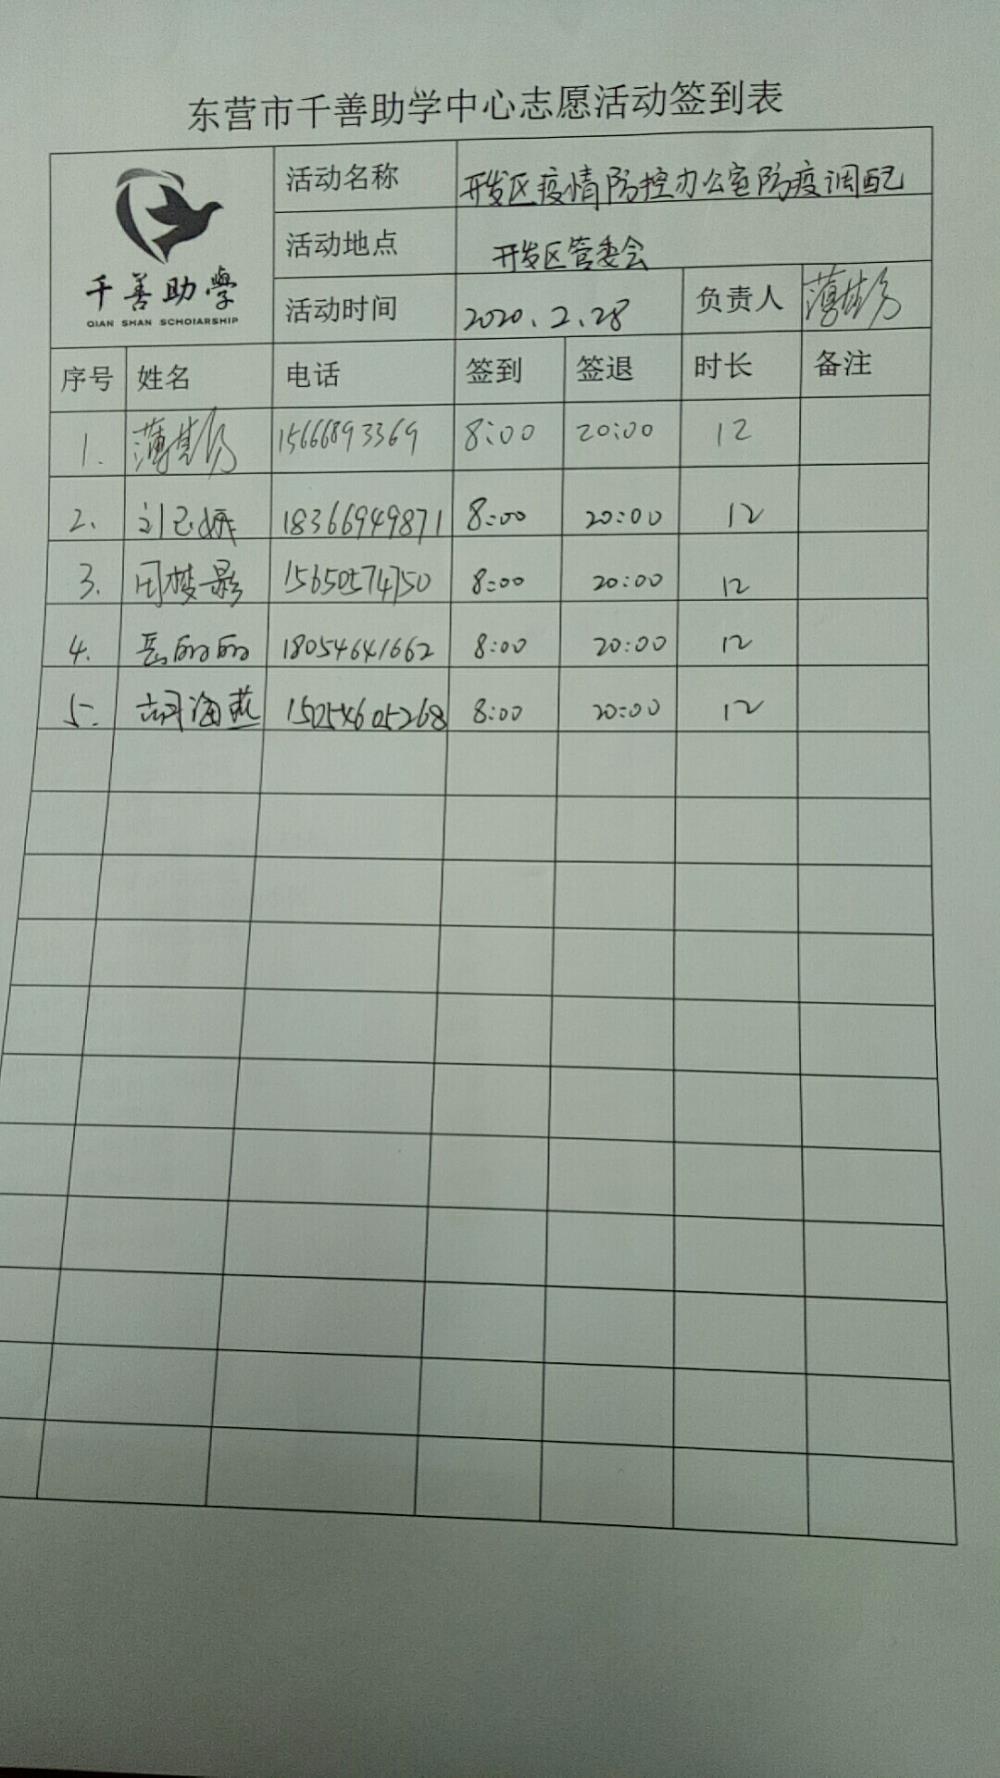 东营市千善助学中心志愿活动签到表
千善助學
QIAN SHAN SCHOIARSHIP
活动名称 开发区疫情防控办公室防疫调配
活动地点 开发区管委会
活动时间 2020.2.28 负责人 薄
序号 姓名 电话 签到 签退 时长 备注
1. 薄 15666893369 8:00 20:00 12
2. 刘已姵 18366949871 8:00 20:00 12
3. 周梦影 15650574750 8:00 20:00 12
4. 岳丽丽 18054641662 8:00 20:00 12
5. 胡海燕 15254605268 8:00 20:00 12